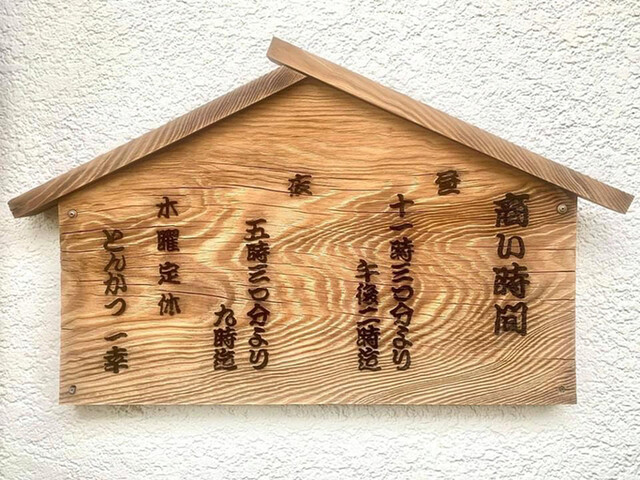 商い時間
昼
十一時三〇分より
午後二時迄
夜
五時三〇分より
九時迄
水曜定休
とんかつ 一幸